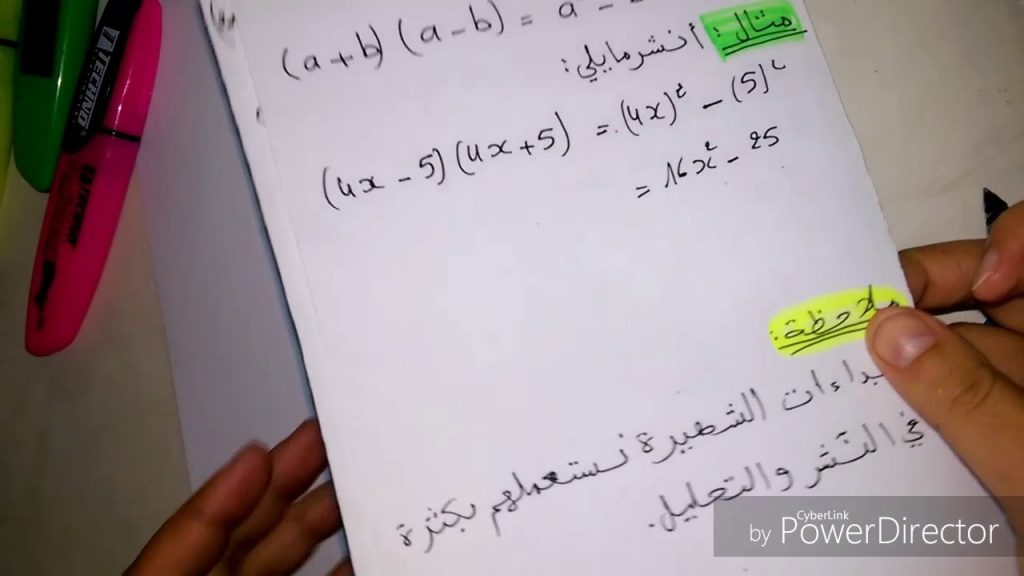 (a+b)(a-b) = a -
مثال: أنشر مايلي:
(4x - 5)(4x + 5) = (4x)² - (5)²
= 16x² - 25
ملاحظة:
الشهيرة نستعملهم بكثرة
في النشر والتحليل.
TECHNO
CyberLink
by PowerDirector